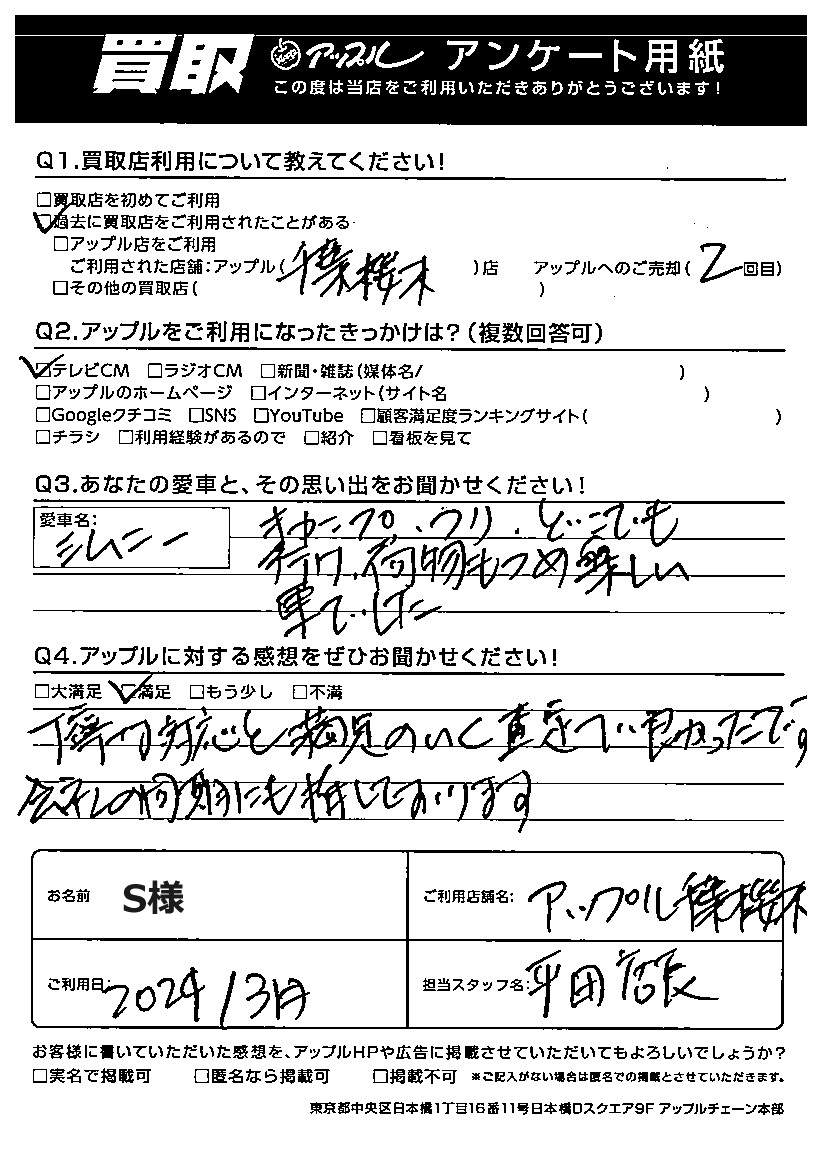 買取 アップル アンケート用紙
この度は当店をご利用いただきありがとうございます!
Q1.買取店利用について教えてください!
□買取店を初めてご利用
☑過去に買取店をご利用されたことがある
□アップル店をご利用
ご利用された店舗:アップル(千葉桜木)店 アップルへのご売却(2回目)
□その他の買取店( )
Q2.アップルをご利用になったきっかけは?(複数回答可)
☑テレビCM □ラジオCM □新聞・雑誌(媒体名/ )
□アップルのホームページ □インターネット(サイト名 )
□Googleクチコミ □SNS □YouTube □顧客満足度ランキングサイト( )
□チラシ □利用経験があるので □紹介 □看板を見て
Q3.あなたの愛車と、その思い出をお聞かせください!
愛車名:
ジムニー
キャンプ、つり、どこでも
行け、荷物もつめ楽しい
車でした
Q4.アップルに対する感想をぜひお聞かせください!
□大満足 ☑満足 □もう少し □不満
対応と満足のいく査定で良かったです
にも おります
お名前 S様 ご利用店舗名: アップル千葉桜木
ご利用日: 2024/3月 担当スタッフ名: 平田
お客様に書いていただいた感想を、アップルHPや広告に掲載させていただいてもよろしいでしょうか?
□実名で掲載可 □匿名なら掲載可 □掲載不可 ※ご記入がない場合は匿名での掲載とさせていただきます。
東京都中央区日本橋1丁目16番11号日本橋Dスクエア9F アップルチェーン本部